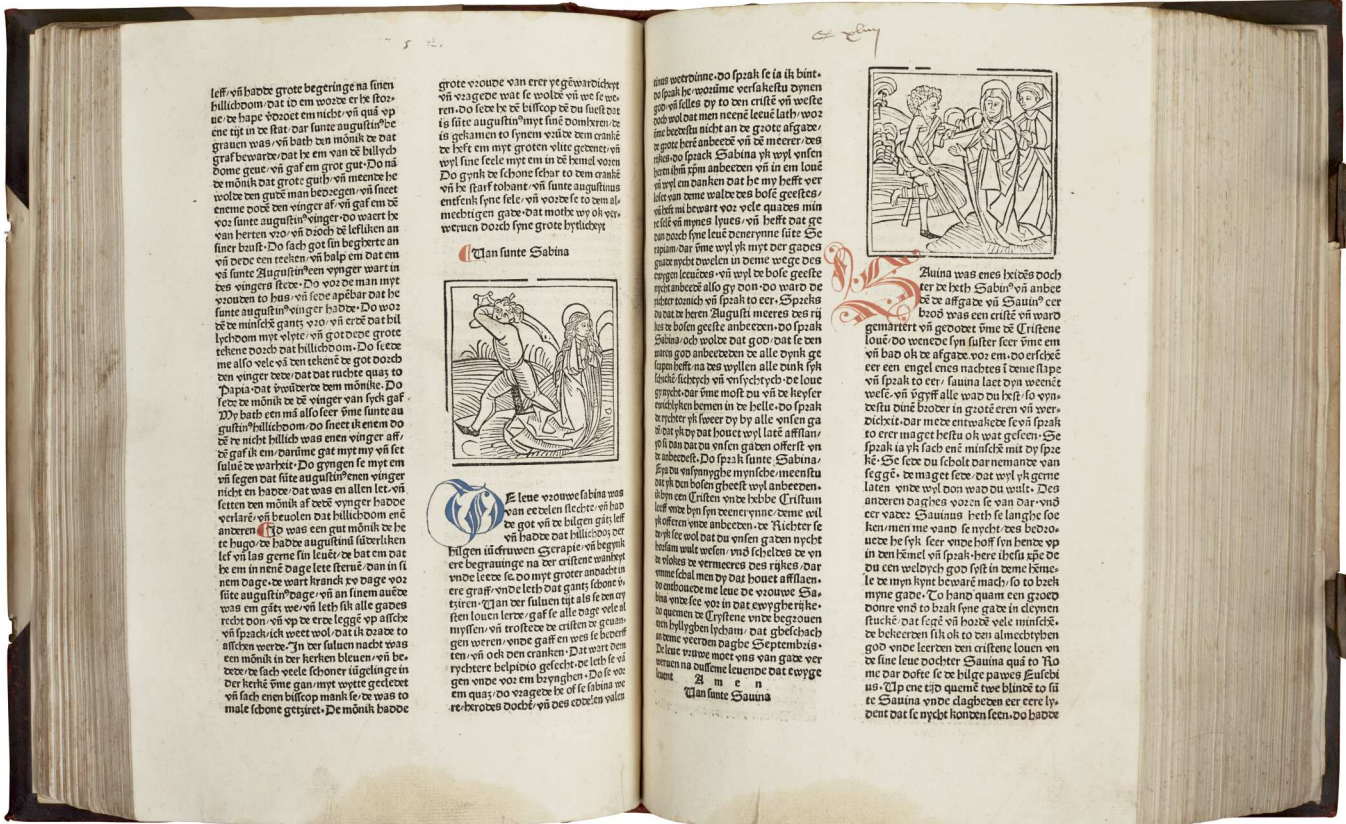 leff/vñ hadde grote begeringe na sinen
hillichdom/dat id em worde er he stor-
ue/de hape vdroet em nicht/vñ quā vp
ene tijt in de stat/dar sunte augustinꝰ be
grauen was/vñ bath den mōnik de dat
graf bewarde/dat he em van dē hillych
dome geue/vñ gaf em grot gut·Do nā
de mōnik dat grote guth/vñ meende he
wolde den gudē man bedregen/vñ sneet
eneme dodē den vinger af/vñ gaf em dē
vor sunte augustinꝰ vinger·do waert he
van herten vro/vñ droch dē lefliken an
siner brust·Do sach got sin begherte an
vñ dede een teeken/vñ halp em dat em
vā sunte Augustinꝰ een vynger wart in
des vingers stede·Do vor de man myt
vrouden to hus/vñ sede apēbar dat he
sunte augustinꝰ vinger hadde·Do wor
dē de minschē gantz vro/vñ erdē dat hil
lychdom myt vlyte/vñ got dede grote
tekene dorch dat hillichdom·Do seede
me also vele vā den tekenē de got dorch
den vinger dede/dat dat ruchte quaz to
Papia·dat vwūderde dem mōnike·Do
sede de mōnik de dē vinger van syck gaf
My bath een mā also seer vme sunte au
gustinꝰ hillichdom/do sneet ik enem do
dē de nicht hillich was enen vinger aff/
dē gaf ik em/darūme gat myt my vñ set
suluē de warheit·Do gyngen se myt em
vñ segen dat sūte augustinꝰ enen vinger
nicht en hadde/dat was en allen let/vñ
setten den mōnik af dedē vynger hadde
verlarē/vñ beuolen dat hillichdom enē
anderen Id was een gut mōnik de he
te hugo/de hadde augustinū sūderliken
lef vñ las gerne sin leuēt/de bat em dat
he em in nenē dage lete steruē/dan in si
nem dage·de wart kranck xv dage vor
sūte augustinꝰ dage/vñ an sinem auēde
was em gātz we/vñ leth sik alle gades
recht don/vñ vp de erde leggē vp assche
vñ sprack/ick weet wol/dat ik drade to
asschen werde·In der suluen nacht was
een mōnik in der kerken bleuen/vñ be-
dede/de sach veele schoner iūgelinge in
der kerkē vme gan/myt wytte gecledet
vñ sach enen bisscop mank se/de was to
male schone getziret·De mōnik hadde
grote vroude van erer yegēwardicheyt
vñ vragede wat se woldē vñ we se we-
ren·Do sede he dē bisscop dē du suest dat
is sūte augustinꝰ myt sinē domherē/de
is gekamen to synem vrūde dem crankē
de heft em myt groten vlite gedenet/vñ
wyl sine seele myt em in dē hemel voren
Do gynk de schone schar to dem crankē
vñ he starf tohant/vñ sunte augustinus
entfenk syne sele/vñ vorde se to dem al-
mechtigen gade·dat mothe wy ok ver-
weruen dorch syne grote hylicheyt
Uan sunte Sabina
De leue vrouwe sabina was
van eedelen slechte/vñ had
de got vñ de hilgen gātz leff
vñ hadde dat hillichdoz der
hilgen iūcfruwen Serapie/vñ begynk
ere begrauinge na der cristene wanheyt
vnde leede se·do myt groter andacht in
ere graff/vnde leth dat gantz schone v-
tziren·Uan der suluen tijt als se den cry
sten louen lerde/gaf se alle dage vele al
myssen/vñ trostede de cristen de geuan-
gen weren/vnde gaff en wes se bederff
ten/vñ ock den cranken·Dat wart dem
rychtere helpidio gesecht·de leth se vā
gen vnde vor em brynghen·Do se vor
em quaz/do vragede he of se sabina we
re/herodes docht/vñ des eddelen valen
tinus weerdinne·do sprak se ia ik bint·
do sprak he/worūme versakestu dynen
god/vñ selles dy to den cristē vñ weste
doch wol dat men neenē leeuē lath/wor
vme beedestu nicht an de grote afgade/
de grote herē anbeedē vñ dē meerer/des
rijkes·do sprack Sabina yk wyl vnsen
heren ihm xpm anbeeden vñ in em louē
vñ wyl em danken dat he my hefft ver
loset van deme walde des bosē geestes/
vñ heft mi bewart vor vele quades min
re selē vñ mynes lyues/vñ hefft dat ge
dan dorch syne leuē denerynne sūte Se
rapiam/dar vme wyl yk myt der gades
gnade nycht dwelen in deme wege des
ewygen leuēdes·vñ wyl de bose geeste
nycht anbeedē also gy don·do ward de
richter tornich vñ sprak to eer·Spreks
du dat de heren Augusti meeres des rij
kes de bosen geeste anbeeden·do sprak
Sabina/och wolde dat god/dat se den
waren god anbeededen de alle dynk ge
scapen hefft/na des wyllen alle dink syk
schickē/sichtych vñ vnsychtych·de loue
gy nycht·dar vme most du vñ de keyser
ewichlyken bernen in de helle·do sprak
de rychter yk sweer dy by alle vnsen ga
dē/dat yk dy dat houet wyl latē affslan/
yd si dan dat du vnsen gaden offerst vn
de anbeedest·Do sprak sunte Sabina/
Eya du vnsynnyghe mynsche/meenstu
dat yk den bosen gheest wyl anbeeden·
ik byn een Cristen vnde hebbe Cristum
leeff vnde byn syn deenerynne/deme wil
yk offeren vnde anbeeden·de Richter se
de/yk see wol dat du vnsen gaden nycht
horsam wult wesen/vnd scheldes de vn
de vlokes de vermeeres des rijkes/dar
vmme schal men dy dat houet affslaen·
do enthouede me leue de vrouwe Sa-
bina vnde see vor in dat ewyghe rijke·
do quemen de Crystene vnde begrouen
eren hyllyghen lycham/dat gheschach
an deme veerden daghe Septembris·
De leue vruwe moet vns van gade ver
weruen na dusseme leuende dat ewyge
leuent A m e n
Uan sunte Sauina
Sauina was enes heidēs doch
ter de heth Sabinꝰ vñ anbee
dē de affgade vñ Sauinꝰ eer
broď was een cristē vñ ward
gemartert vñ gedodet vme dē Cristene
louē/do wenede syn suster seer vme em
vñ bad ok de afgade vor em·do erscheē
eer een engel enes nachtes ī deme slape
vñ sprak to eer/sauina laet dyn weenēt
wesē·vñ vgyff alle wad du hest/so vyn-
destu dinē broder in grotē eren vñ wer-
dicheit·dar mede entwakede se vñ sprak
to erer maget hestu ok wat geseen·Se
sprak ia yk sach enē minschē mit dy spre
kē·Se sede du scholt dar nemande van
seggē·de maget sede/dat wyl yk gerne
laten vnde wyl don wad du wult·Des
anderen daghes voren se van dar·vnď
eer vader Sauinus heth se langhe soe
ken/men me vand se nycht/des bedro-
uede he syk seer vnde hoff syn hende vp
in den hēmel vñ sprak·here ihesu xpe de
du een weldych god syst in deme hēme-
le de myn kynt bewarē mach/so to brek
myne gade·To hand quam een groed
donre vnď to brak syne gade in cleynen
stuckē/dat segē vñ hordē vele minschē·
de bekeerden sik ok to den almechtyhen
god vnde leerden den cristene louen vn
de sine leue dochter Sauina quā to Ro
me dar dofte se de hilge pawes Eusebi
us·Up ene tijd quemē twe blindē to sū
te Sauina vnde clagheden eer eere ly-
dent dat se nycht konden seen·do hadde